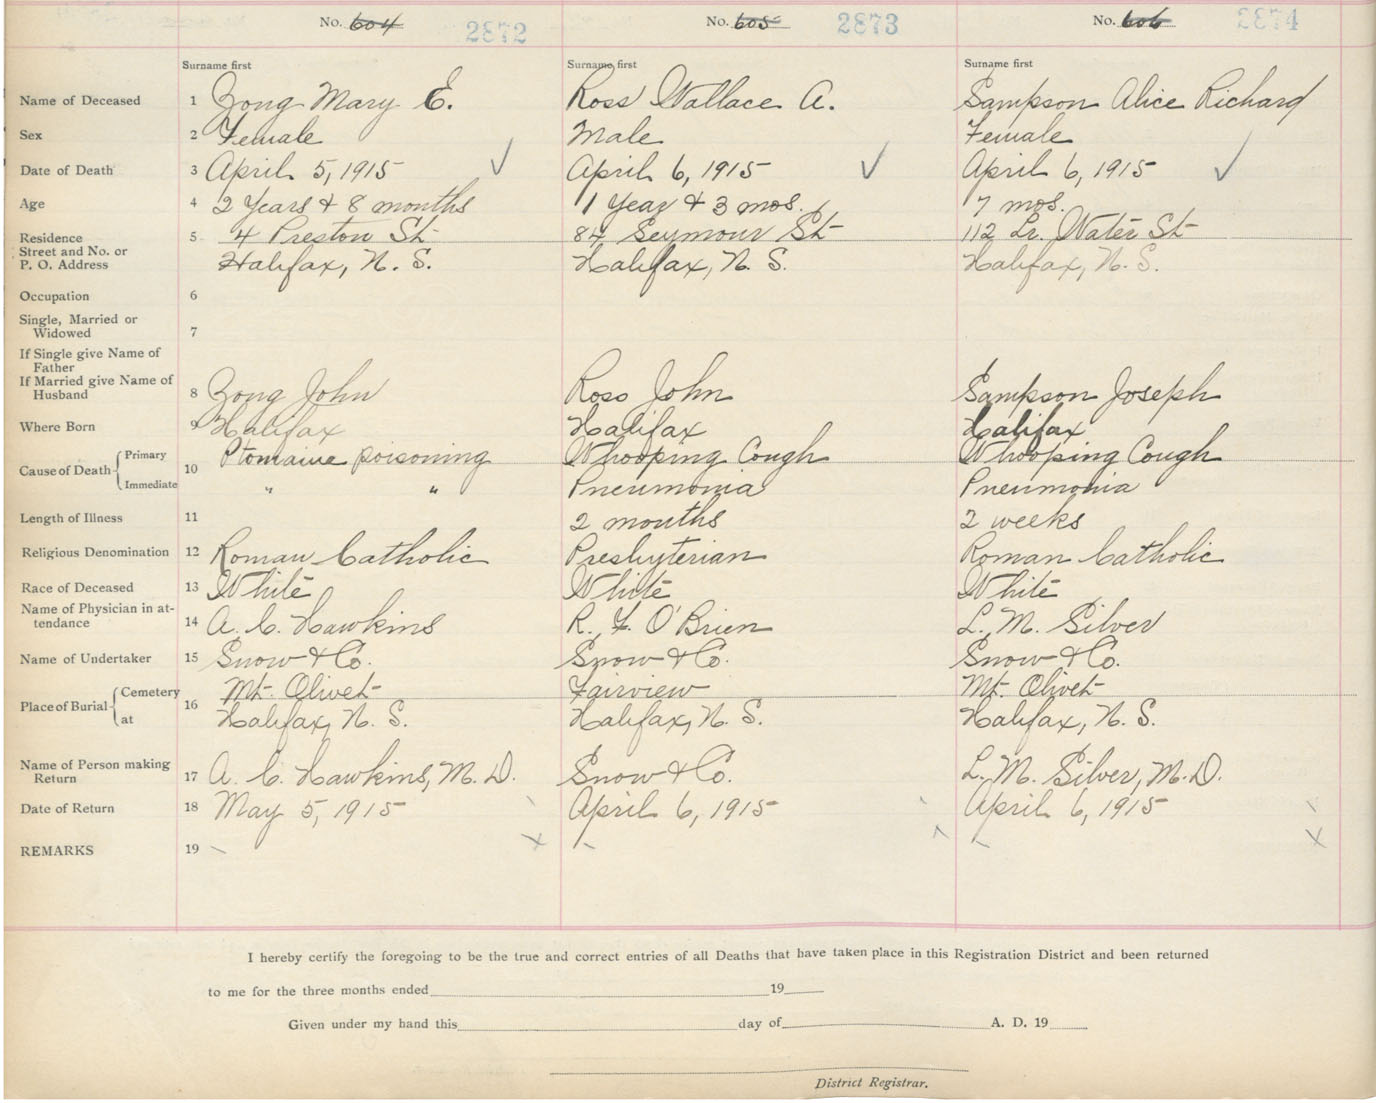 No. 604 2872 No. 605 2873 No. 606 2874
Surname first Surname first Surname first
Name of Deceased 1 Zong Mary E. Ross Wallace A. Sampson Alice Richard
Sex 2 Female Male Female
Date of Death 3 April 5, 1915 April 6, 1915 April 6, 1915
Age 4 2 Years & 8 months 1 Year & 3 mos. 7 mos.
Residence 5 4 Preston St 84 Seymour St 112 Lr. Water St
Street and No. or
P. O. Address Halifax, N. S. Halifax, N. S. Halifax, N. S.
Occupation 6
Single, Married or
Widowed 7
If Single give Name of
Father
If Married give Name of
Husband 8 Zong John Ross John Sampson Joseph
Where Born 9 Halifax Halifax Halifax
Cause of Death Primary 10 Ptomaine poisoning Whooping Cough Whooping Cough
Immediate " " Pneumonia Pneumonia
Length of Illness 11 2 months 2 weeks
Religious Denomination 12 Roman Catholic Presbyterian Roman Catholic
Race of Deceased 13 White White White
Name of Physician in at-
tendance 14 A. C. Hawkins R. F. O'Brien L. M. Silver
Name of Undertaker 15 Snow & Co. Snow & Co. Snow & Co.
Place of Burial Cemetery 16 Mt. Olivet Fairview Mt. Olivet
at Halifax, N. S. Halifax, N. S. Halifax, N. S.
Name of Person making
Return 17 A. C. Hawkins, M. D. Snow & Co. L. M. Silver, M.D.
Date of Return 18 May 5, 1915 April 6, 1915 April 6, 1915
REMARKS 19
I hereby certify the foregoing to be the true and correct entries of all Deaths that have taken place in this Registration District and been returned
to me for the three months ended 19
Given under my hand this day of A. D. 19
District Registrar.